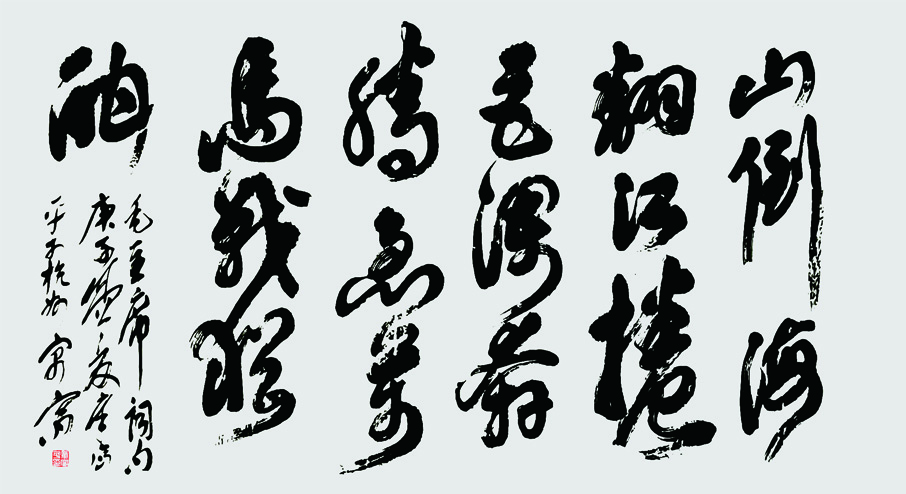 山倒海
翻江捲
巨瀾奔
騰急萬
馬戰猶
酣
毛主席詞句
庚子
杭州